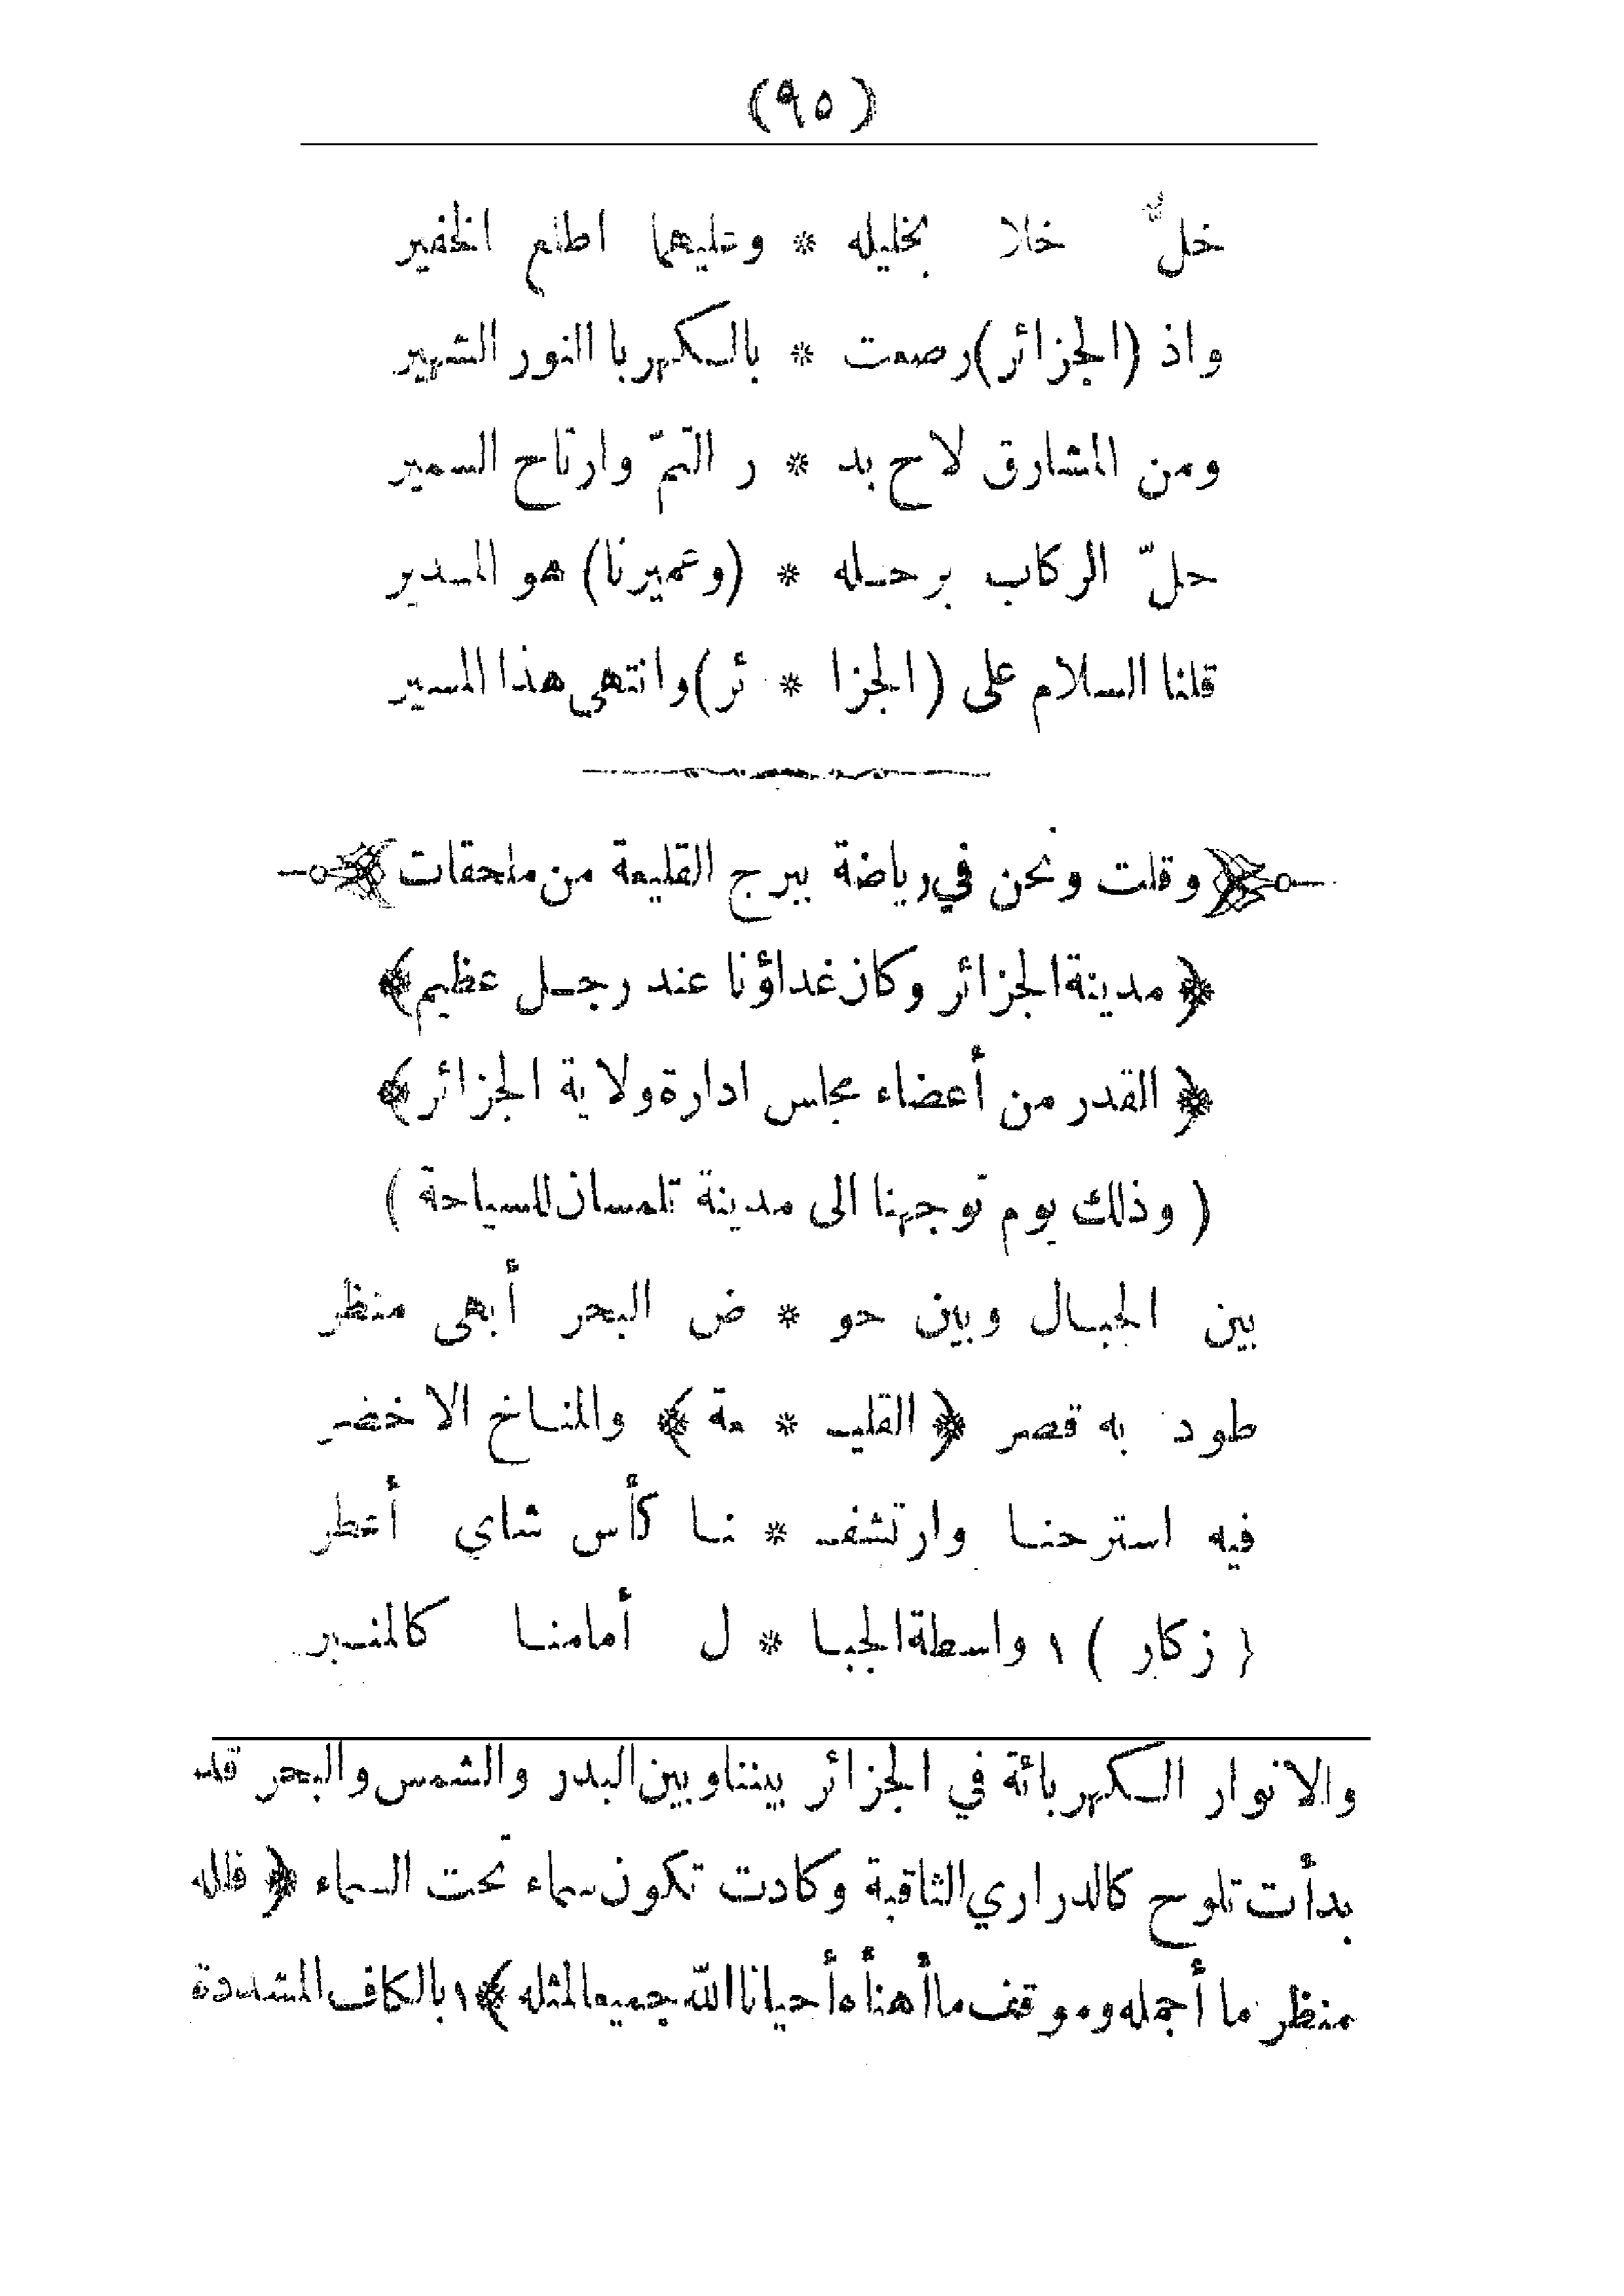 (٩٥)
خلٌّ خلا بخليله * وعليهما اطلع الخفير
واذ (الجزائر) رصعت * بالكهربا النور الشهير
ومن المشارق لاح بد * ر التمّ وارتاح السمير
حلّ الركاب برحله * (وعميرنا) هو المدير
قلنا السلام على (الجزا * ئر) وانتهى هذا المسير
﴿وقلت ونحن في رياضة ببرج القليعة من ملحقات﴾
﴿مدينة الجزائر وكان غداؤنا عند رجل عظيم﴾
﴿القدر من أعضاء مجلس ادارة ولاية الجزائر﴾
(وذلك يوم توجهنا الى مدينة تلمسان للسياحة)
بين الجبال وبين حو * ض البحر أبهى منظر
طود به قصر ﴿القليـ * ـعة﴾ والمناخ الاخضر
فيه استرحنا وارتشفـ * ـنا كأس شاي أعطر
(زكار) ١ واسطة الجبا * ل أمامنا كالمنبر
والانوار الكهربائة في الجزائر بيننا وبين البدر والشمس والبحر قد
بدأت تلوح كالدراري الثاقبة وكادت تكون سماء تحت السماء ﴿فلله
منظر ما أجمله وموقف ما أهنأه أحيانا الله جميعا لمثله﴾ ١ بالكاف المشددة